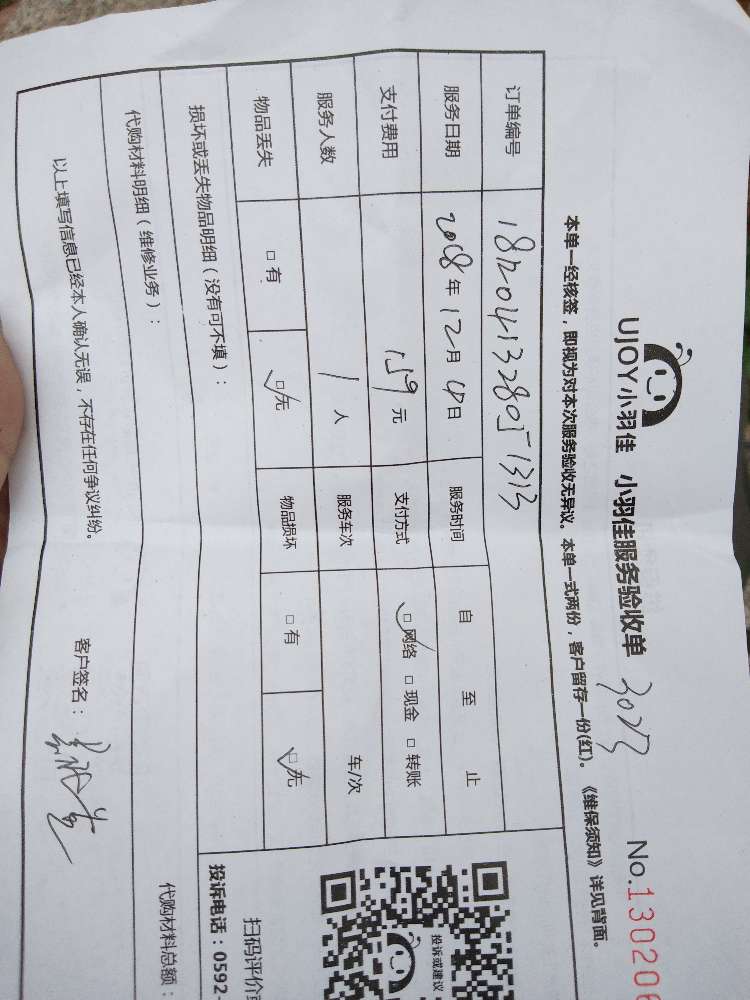 UJOY小羽佳 小羽佳服务验收单 No.130206
本单一经核签，即视为对本次服务验收无异议。本单一式两份，客户留存一份(红)。《维保须知》详见背面。
订单编号 1812041328051313
服务日期 2018年12月 日 服务时间 自 至 止
支付费用 159元 支付方式 □网络 □现金 □转账
服务人数 1人 服务车次 车/次
物品丢失 □有 □无 物品损坏 □有 □无
损坏或丢失物品明细（没有可不填）：
代购材料明细（维修业务）：
代购材料总额：
以上填写信息已经本人确认无误，不存在任何争议纠纷。 客户签名：
投诉或建议
扫码评价
投诉电话：0592-